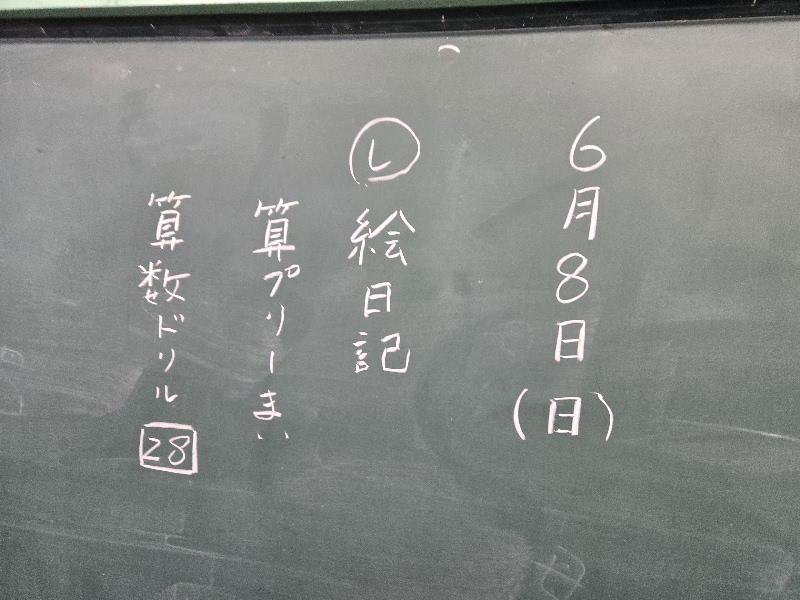 6月8日(日)
Ⓛ 絵日記
算プリーまい
算数ドリル 28